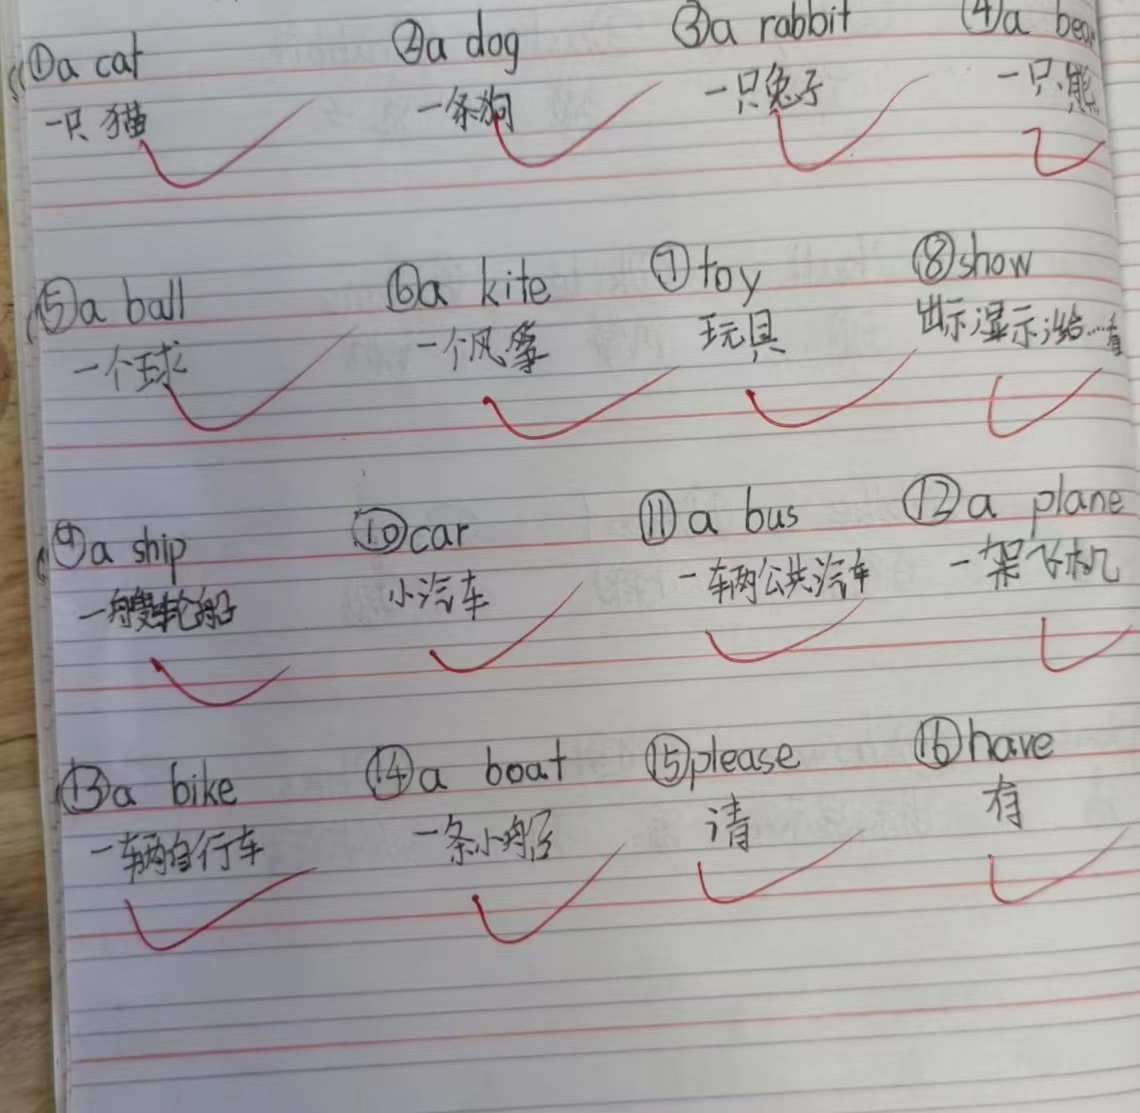 ①a cat ②a dog ③a rabbit ④a bear
一只猫 一条狗 一只兔子 一只熊
⑤a ball ⑥a kite ⑦toy ⑧show
一个球 一个风筝 玩具 出示;显示;给…看
⑨a ship ⑩car ⑪a bus ⑫a plane
一艘轮船 小汽车 一辆公共汽车 一架飞机
⑬a bike ⑭a boat ⑮please ⑯have
一辆自行车 一条小船 请 有